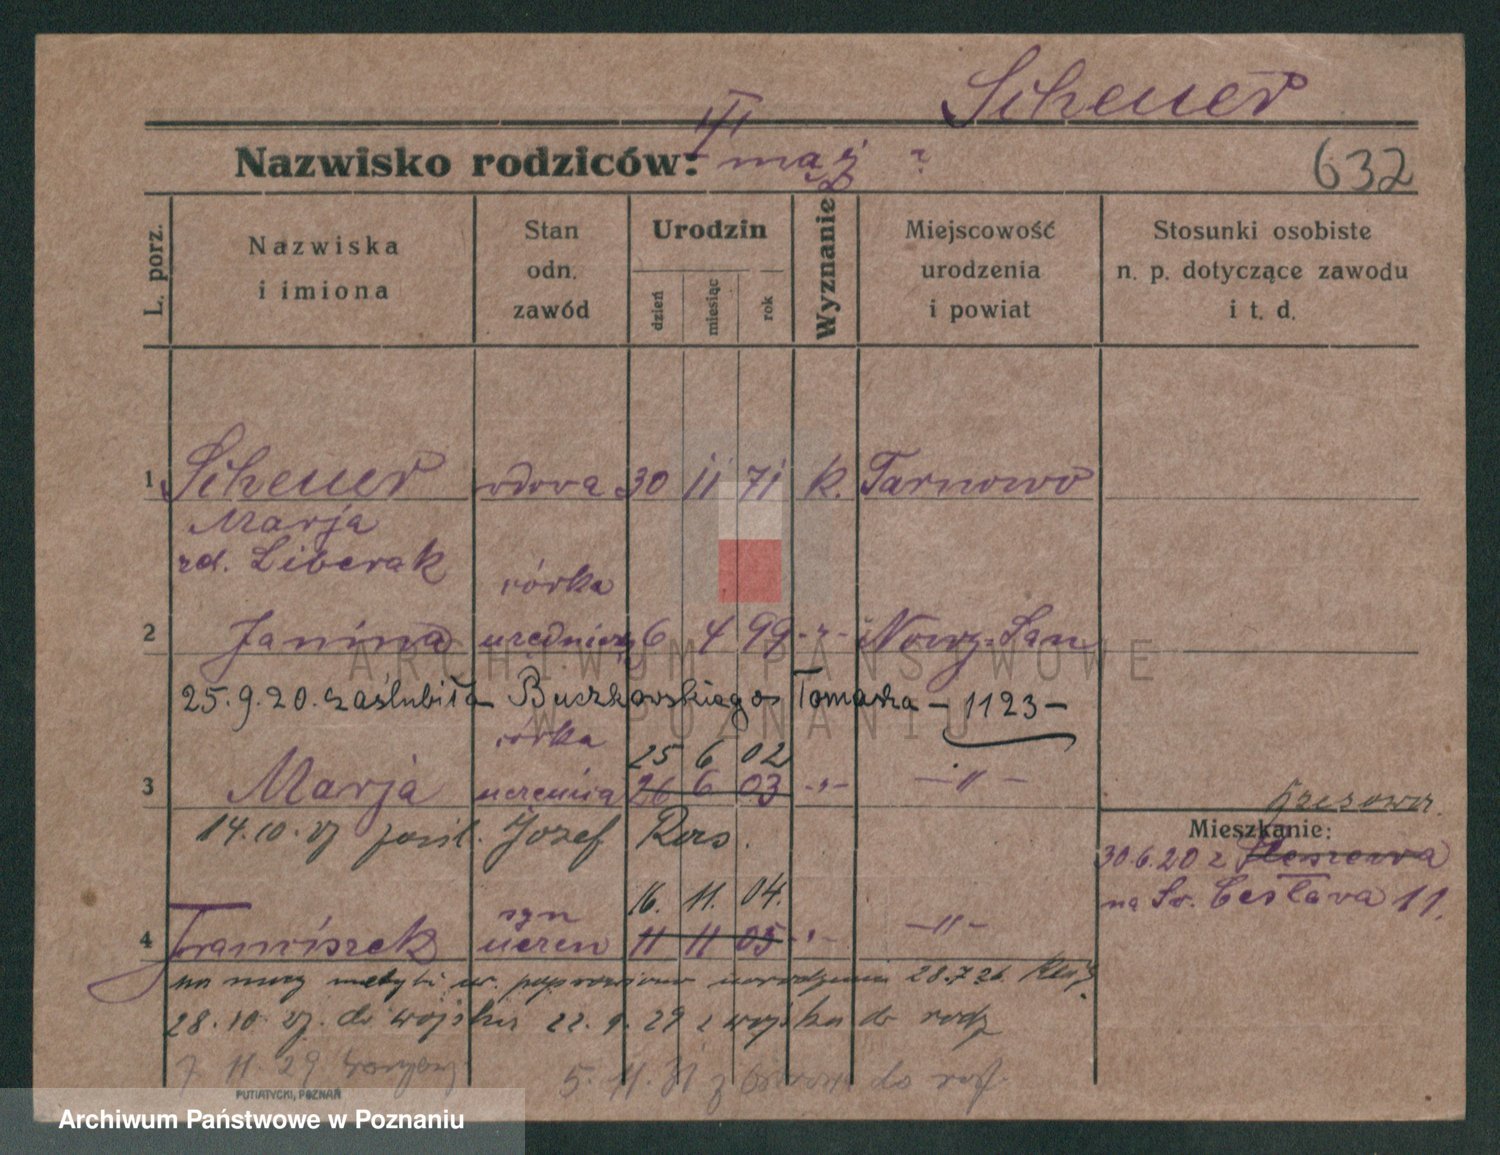 Scheuer
Nazwisko rodziców: II mąż ?
632
L. porz.
Nazwiska
i imiona
Stan
odn.
zawód
Urodzin
dzień
miesiąc
rok
Wyznanie
Miejscowość
urodzenia
i powiat
Stosunki osobiste
n. p. dotyczące zawodu
i t. d.
1 Scheuer wdowa 30 11 71 k. Tarnowo
Marja
rd. Liberak
córka
2 Janina 6 4 99 Nowy-San
25.9.20. zaślubiła Buczkowskiego Tomasza - 1123 -
córka 25 6 02
3 Marja uczenica 26 6 03 -"-
14.10.27 zaśl. Józef
Mieszkanie:
30.6.20 z
na Św. Cesława 11.
syn 16. 11. 04.
4 Franciszek uczeń 11 11 05 -"-
na mocy metryki poprawiono urodzenie 28.7.26
28.10.27. do wojska 22.9.29 z wojska do rodz
7 11.29
5.11.31 z do
PUTIATYCKI, POZNAŃ
ARCHIWUM PAŃSTWOWE
W POZNANIU
Archiwum Państwowe w Poznaniu